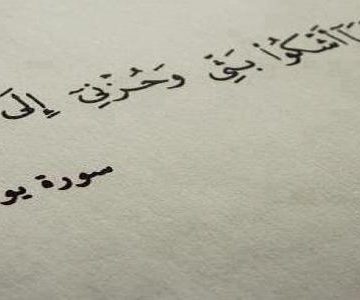 أَشْكُوا۟ بَثِّى وَحُزْنِىٓ إِلَى
سورة يو